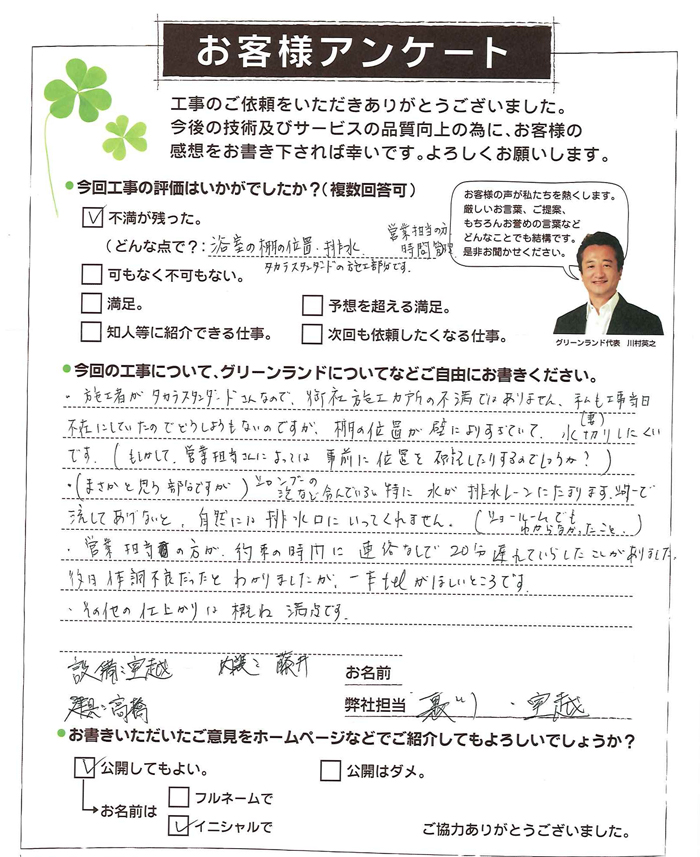 お客様アンケート
工事のご依頼をいただきありがとうございました。
今後の技術及びサービスの品質向上の為に、お客様の
感想をお書き下されば幸いです。よろしくお願いします。
今回工事の評価はいかがでしたか?(複数回答可)
不満が残った。
(どんな点で?: 浴室の棚の位置・排水 営業担当の方 時間管理
タカラスタンダードの施工部分です。
可もなく不可もない。
満足。
予想を超える満足。
知人等に紹介できる仕事。
次回も依頼したくなる仕事。
お客様の声が私たちを熱くします。
厳しいお言葉、ご提案、
もちろんお誉めの言葉など
どんなことでも結構です。
是非お聞かせください。
グリーンランド代表 川村英之
今回の工事について、グリーンランドについてなどご自由にお書きください。
・施工者がタカラスタンダードさんなので、御社施工カ所の不満ではありません、私も工事当日
不在にしていたのでどうしようもないのですが、棚の位置が壁によりすぎていて、水切りしにくい
です。(もしかして、営業担当さんによっては事前に位置を確認したりするのでしょうか?)
・(まさかと思う部分ですが)シャンプーの泡など含んでいると特に水が排水レーンにたまります。で
流してあげないと、自然には排水口にいってくれません。(ショールームでもわからなかったこと..)
・営業担当の方が、約束の時間に連絡なしで20分遅れていらしたことがありました。
後日体調不良だったとわかりましたが、一本telがほしいところです。
・その他の仕上がりは概ね満点です。
設備:室越
藤井
お名前
建具:高橋
弊社担当 室越
お書きいただいたご意見をホームページなどでご紹介してもよろしいでしょうか?
公開してもよい。
公開はダメ。
お名前は
フルネームで
イニシャルで
ご協力ありがとうございました。